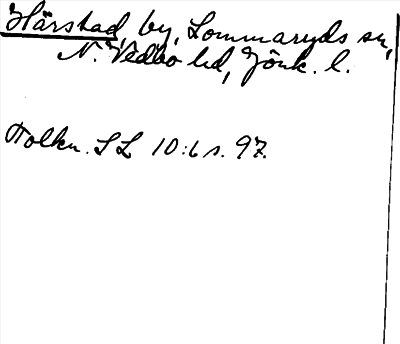 Härstad, by, Lommaryds sn,
N. Vedbo hd, Jönk. l.
Tolkn. SL 10:6 s. 97.